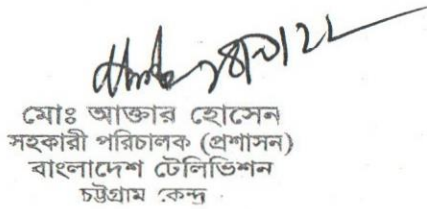 মোঃ আক্তার হোসেন
সহকারী পরিচালক (প্রশাসন)
বাংলাদেশ টেলিভিশন
চট্টগ্রাম কেন্দ্র